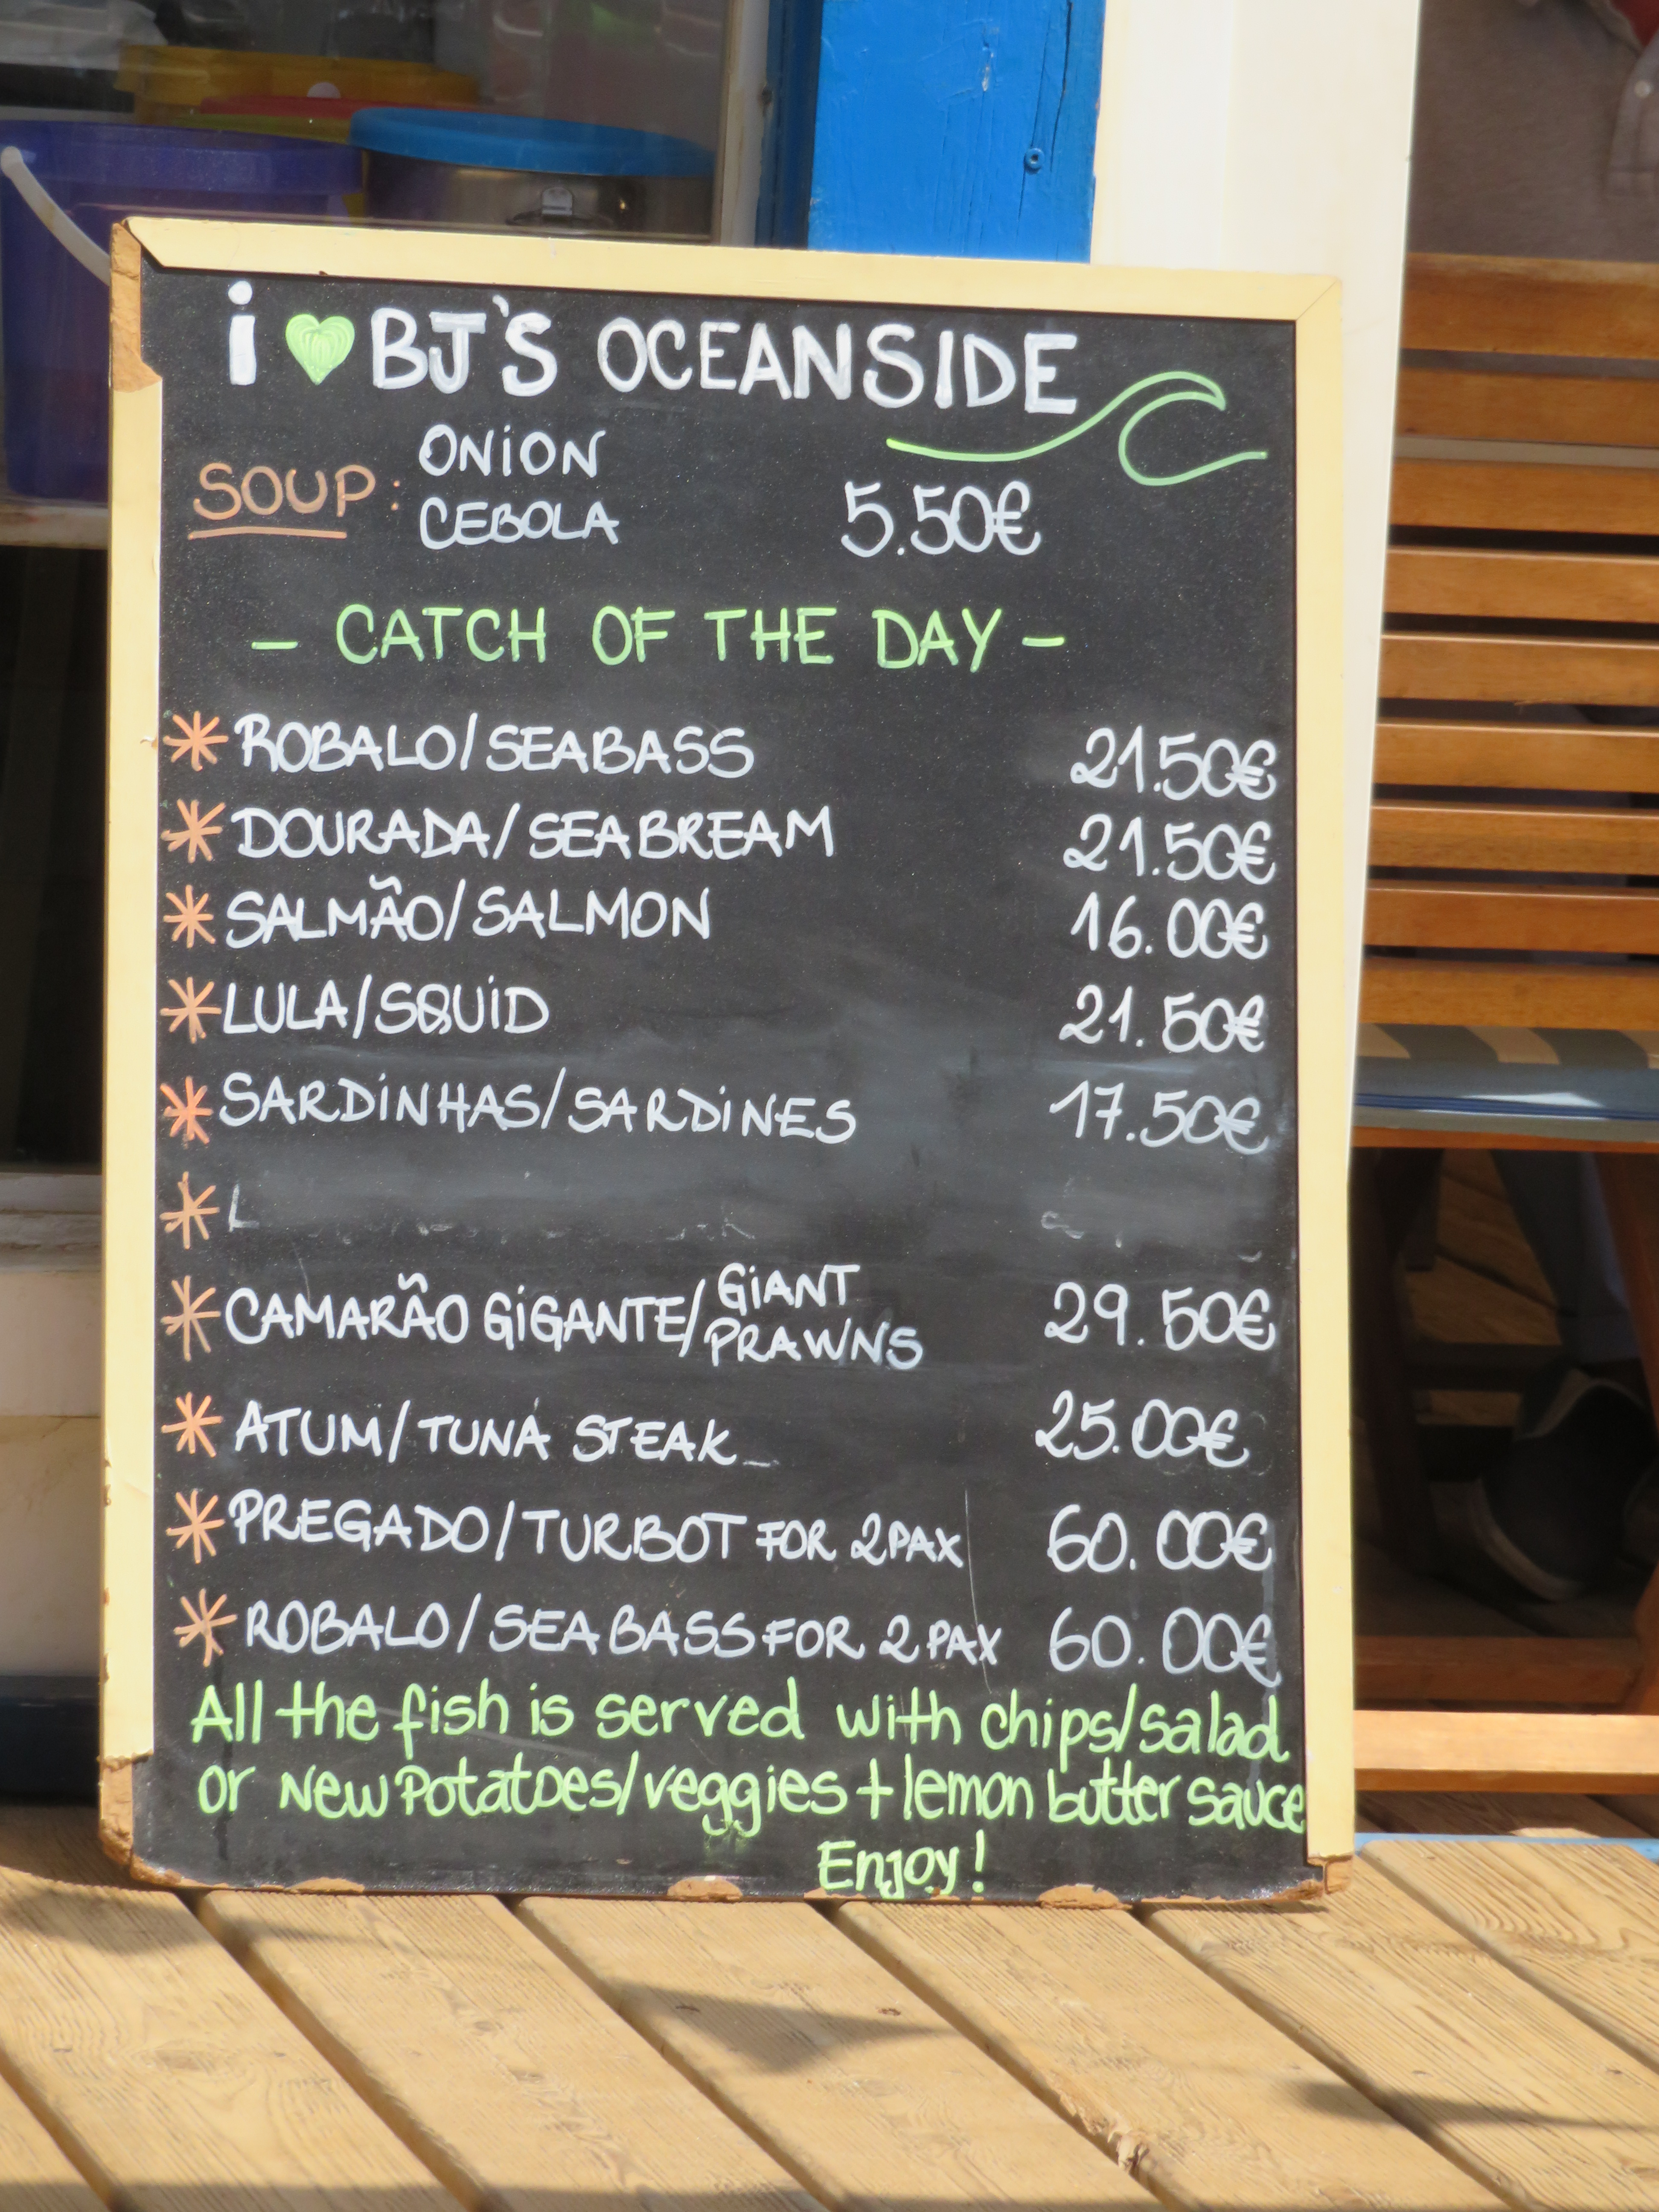 i ♥ BJ'S OCEANSIDE
SOUP: ONION
CEBOLA 5.50€
- CATCH OF THE DAY -
* ROBALO/SEABASS 21.50€
* DOURADA/SEABREAM 21.50€
* SALMÃO/SALMON 16.00€
* LULA/SQUID 21.50€
* SARDINHAS/SARDINES 17.50€
* L
* CAMARÃO GIGANTE/GIANT PRAWNS 29.50€
* ATUM/TUNA STEAK 25.00€
* PREGADO/TURBOT FOR 2PAX 60.00€
* ROBALO/SEABASS FOR 2 PAX 60.00€
All the fish is served with chips/salad
or New Potatoes/veggies + lemon butter sauce
Enjoy!